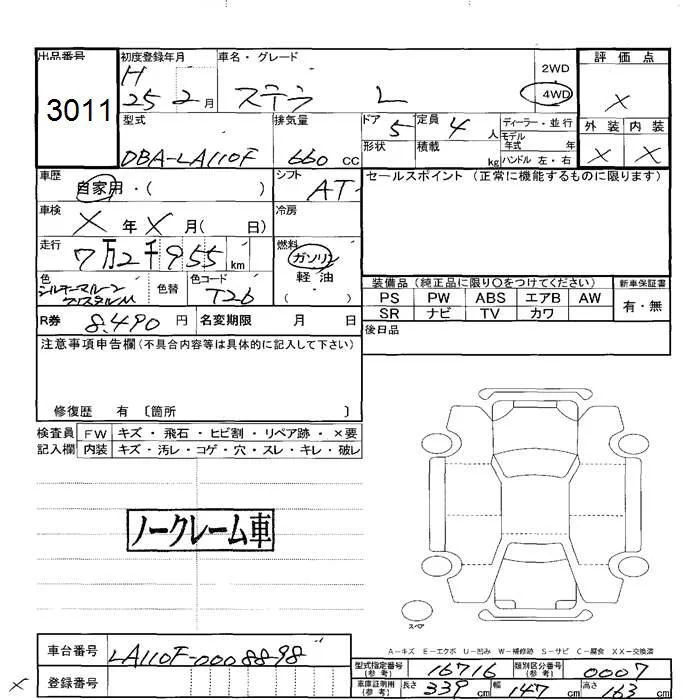 出品番号 初度登録年月 車名・グレード 2WD 評価点
3011 H 25 2月 ステラ L 4WD ×
型式 排気量 ドア 5 定員 4 人 ディーラー・並行 外装 内装
DBA-LA110F 660 cc 形状 積載 kg モデル年式 年 × ×
ハンドル 左・右
車歴 自家用・( ) シフト AT セールスポイント (正常に機能するものに限ります)
車検 × 年 × 月( 日) 冷房
走行 7万2千955 km 燃料 ガソリン
軽油
色 色替 色コード T26 ・( )
装備品 (純正品に限り〇をつけてください) 新車保証書
PS PW ABS エアB AW 有・無
SR ナビ TV カワ
R券 8,490 円 名変期限 月 日 後日品
注意事項申告欄(不具合内容等は具体的に記入して下さい)
修復歴 有 〔箇所 〕
検査員 FW キズ・飛石・ヒビ割・リペア跡・×要
記入欄 内装 キズ・汚レ・コゲ・穴・スレ・キレ・破レ
ノークレーム車
スペア
A-キズ E-エクボ U-凹み W-補修跡 S-サビ C-腐食 XX-交換済
車台番号 LA110F-0008898
型式指定番号(参考) 16716 類別区分番号(参考) 0007
× 登録番号 車庫証明用(参考) 長さ 339 cm 幅 147 cm 高さ 163 cm